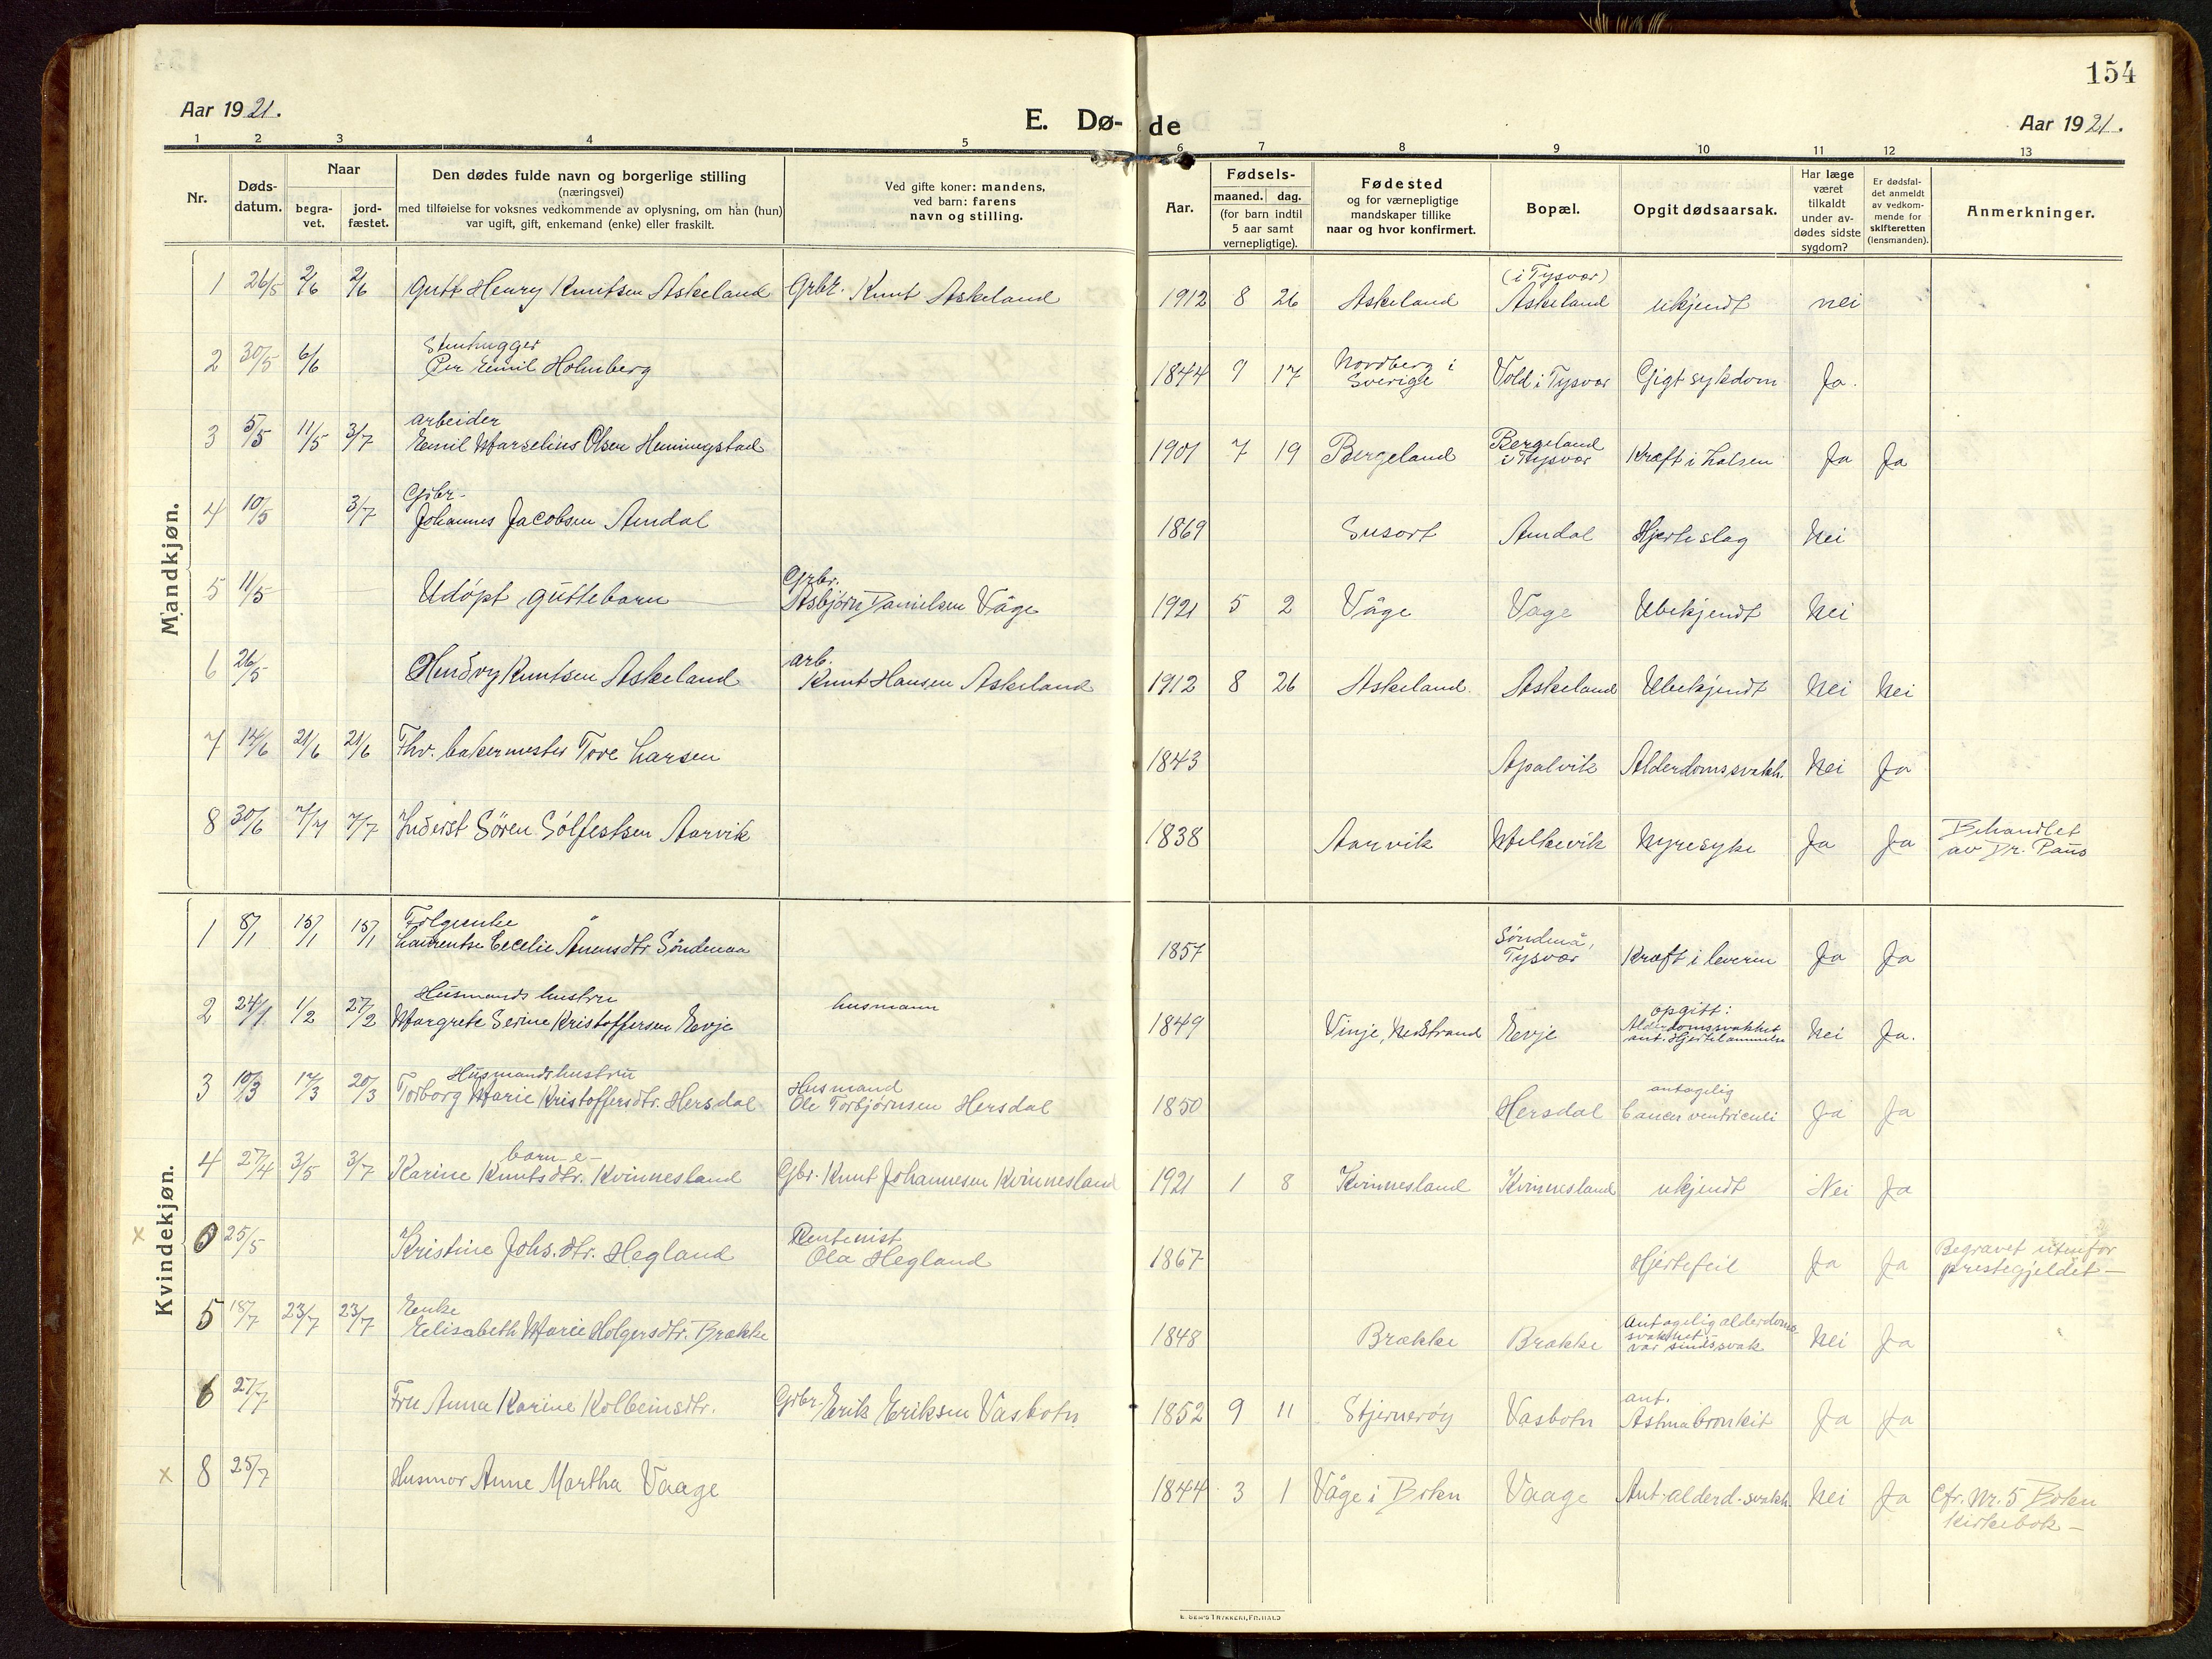 154
Aar 1921.
E. Dø-
de
Aar 1921.
1 2 3 4 5 6 7 8 9 10 11 12 13
Nr.
Døds-
datum.
Naar
begra-
vet.
jord-
fæstet.
Den dødes fulde navn og borgerlige stilling
(næringsvei)
med tilføielse for voksnes vedkommende av oplysning, om han (hun)
var ugift, gift, enkemand (enke) eller fraskilt.
Ved gifte koner: mandens,
ved barn: farens
navn og stilling.
Aar.
Fødsels-
maaned. dag.
(for barn indtil
5 aar samt
vernepligtige).
Fødested
og for værnepligtige
mandskaper tillike
naar og hvor konfirmert.
Bopæl.
Opgit dødsaarsak.
Har læge
været
tilkaldt
under av-
dødes sidste
sygdom?
Er dødsfal-
det anmeldt
av vedkom-
mende for
skifteretten
(lensmanden).
Anmerkninger.
Mandkjøn.
(i Tysvær)
1 26/5 2/6 2/6 Gutt Henry Knutsen Askeland Grbr. Knut Askeland 1912 8 26 Askeland Askeland ukjendt nei
Stenhugger
2 30/5 6/6 Per Emil Holmberg 1844 9 17 Nordberg i
Sverige Vold i Tysvær Gigtsykdom Ja.
arbeider
3 5/5 11/5 3/7 Emil Marselius Olsen Hemmingstad 1901 7 19 Bergeland Bergeland
i Tysvær Kræft i halsen Ja Ja
Gibr.
4 10/5 3/7 Johannes Jacobsen Amdal 1869 Susort Amdal Hjerteslag Nei
Grbr.
5 11/5 Udøpt guttebarn Asbjørn Danielsen Våge 1921 5 2 Våge Vage Ubekjendt Nei
arb.
6 26/5 Hendry Knutsen Askeland Knut Hansen Askeland 1912 8 26 Askeland Askeland Ubekjendt Nei Nei
7 14/6 21/6 21/6 Fhv. bakermester Tore Larsen 1843 Apalvik Alderdomssvakh. Nei Ja
8 30/6 7/7 7/7 Inderst Sören Sölfestsen Aarvik 1838 Aarvik Melkevik Nyresyke Ja Ja Behandlet
av Dr. Paus
Kvindekjøn.
Folgeenke
1 8/1 15/1 15/1 Laurentse Cecelie Ånensdtr. Söndenaa 1857 Søndenå,
Tysvær Kræft i leveren Ja Ja
Husmands hustru
2 24/1 1/2 27/2 Margrete Serine Kristoffersen Eevje husmann 1849 Vinje, Nedstrand Eevje opgitt:
Alderdomssvakhet
ant. Hjertelammelse Nei Ja.
Husmandshustru
3 10/3 17/3 20/3 Torborg Marie Kristoffersdtr. Hersdal Husmand
Ole Torbjørnsen Hersdal 1850 Hersdal antagelig
Cancer ventriculi Ja Ja
barn e-
4 27/4 3/5 3/7 Karine Knutsdtr. Kvinnesland Gbr. Knut Johannesen Kvinnesland 1921 1 8 Kvinnesland Kvinnesland ukjendt Nei Ja
x 0 25/5 Kristine Johs.dtr. Hegland Rentenist
Ola Hegland 1867 Hjertefeil Ja Ja Begravet utenfor
prestegjeldet-
Enke
5 18/7 23/7 23/7 Eelisabeth Marie Holgersdtr. Brække 1848 Brække Brække Antagelig alderdoms-
svakhet-
var sindssvak Nei Ja
6 27/7 Fru Anna Karine Kolbeinsdtr. Grbr. Erik Eriksen Vasbotn 1852 9 11 Stjernerøy Vasbotn ant.
Astma bronkit Ja Ja
x 8 25/7 Husmor Anne Martha Vaage 1844 3 1 Våge i Bokn Vaage Ant. alderd. svakh. Nei Ja Cfr. Nr. 5 Bokn
kirkebok-